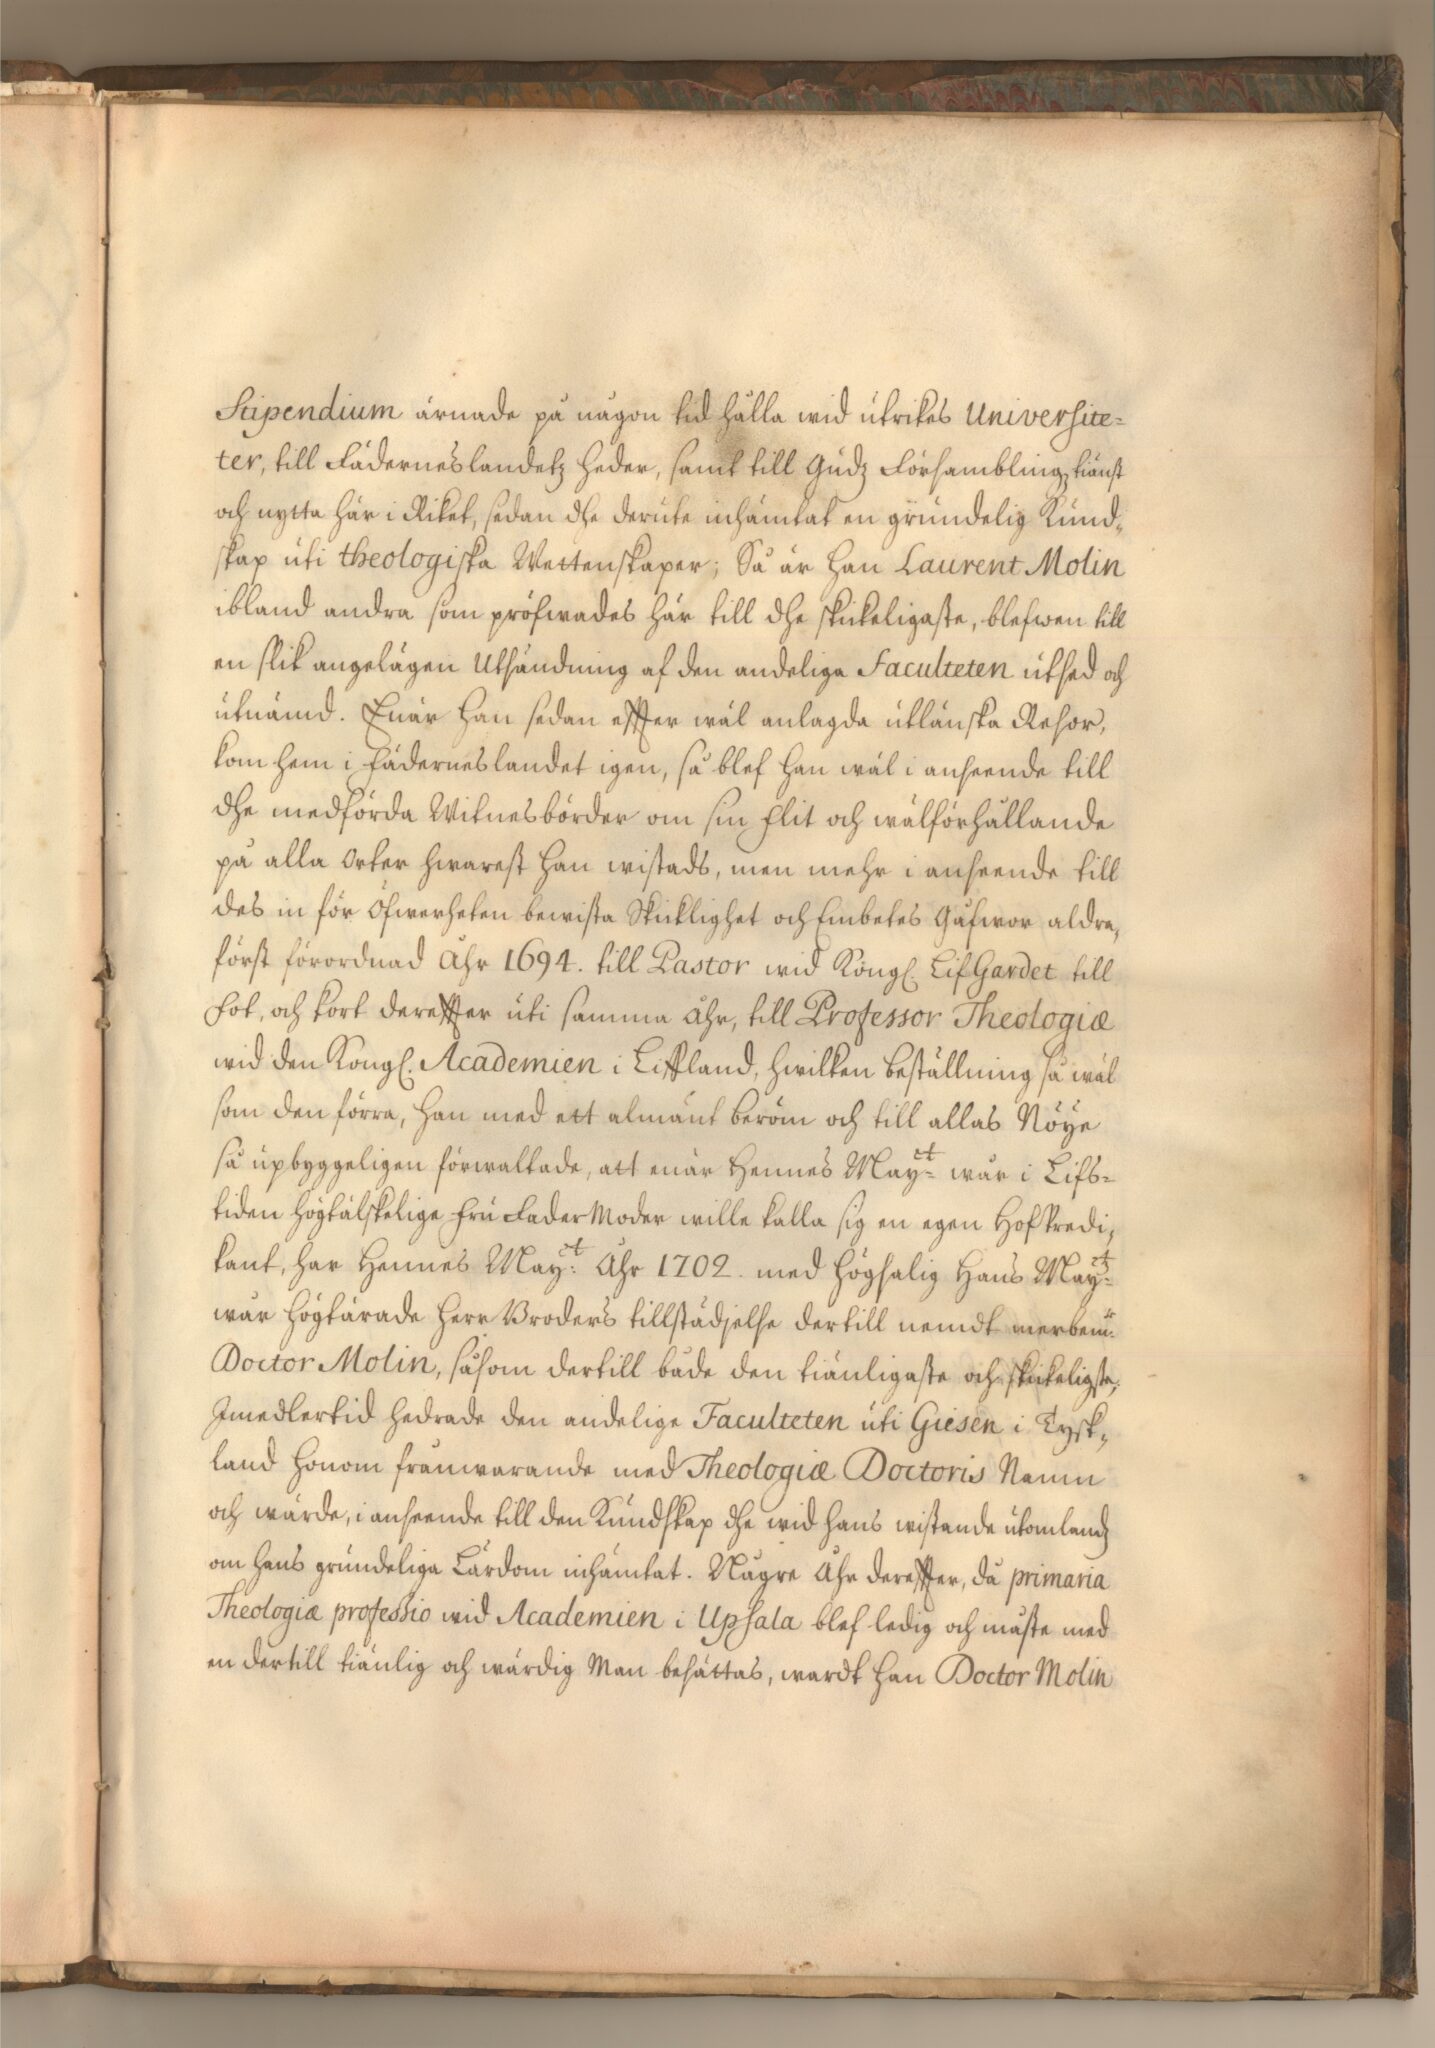 Stipendium ärnade på någon tid hålla wid utrikes Universite=
ter, till Fäderneslandetz heder, samt till Gudz Församblings tiänst
och nytta här i Riket, sedan dhe derute inhämtat en grundelig Kund-
skap uti theologiska Wettenskaper; Så är han Laurent Molin
ibland andra som pröfwades här till dhe skickeligaste, blefwen till
en slik angelägen Uthsändning af den andeliga Faculteten uthsed och
utnämd. Enär han sedan effter wäl anlagda utlänska Resor,
kom hem i Fäderneslandet igen, så blef han wäl i anseende till
dhe medförda Witnesbörder om sin flit och wälförhållande
på alla Orter hwarest han wistads, men mehr i anseende till
des in för Öfwerheten bewista Skicklighet och Embetes Gåfwor aldra,
först förordnad Åhr 1694. till Pastor wid Kongl. LifGardet till
Fot, och kort dereffter uti samma Åhr, till Professor Theologiæ
wid den Kongl. Academien i Liffland, hwilken beställning så wäl
som den förra, han med ett almänt beröm och till allas Nöye
så upbyggeligen förwaltade, att enär Hennes May:t wår i Lifs=
tiden högtälskelige Fru FaderModer wille kalla sig en egen Hofpredi,
kant, har Hennes May:t Åhr 1702. med högsalig Hans May:t
wår högtärade Herr Broders tillstädjelse dertill nemdt merbem:te
Doctor Molin, såsom dertill både den tiänligaste och skickeligste,
Imedlertid hedrade den andelige Faculteten uti Giesen i Tysk-
land honom frånwarande med Theologiæ Doctoris Namn
och wärde, i anseende till den Kundskap dhe wid hans wistande utomlandz
om hans grundeliga Lärdom inhämtat. Någre Åhr dereffter, då primaria
Theologiæ professio wid Academien i Upsala blef ledig och måste med
en dertill tiänlig och wärdig Man besättas, wardt han Doctor Molin